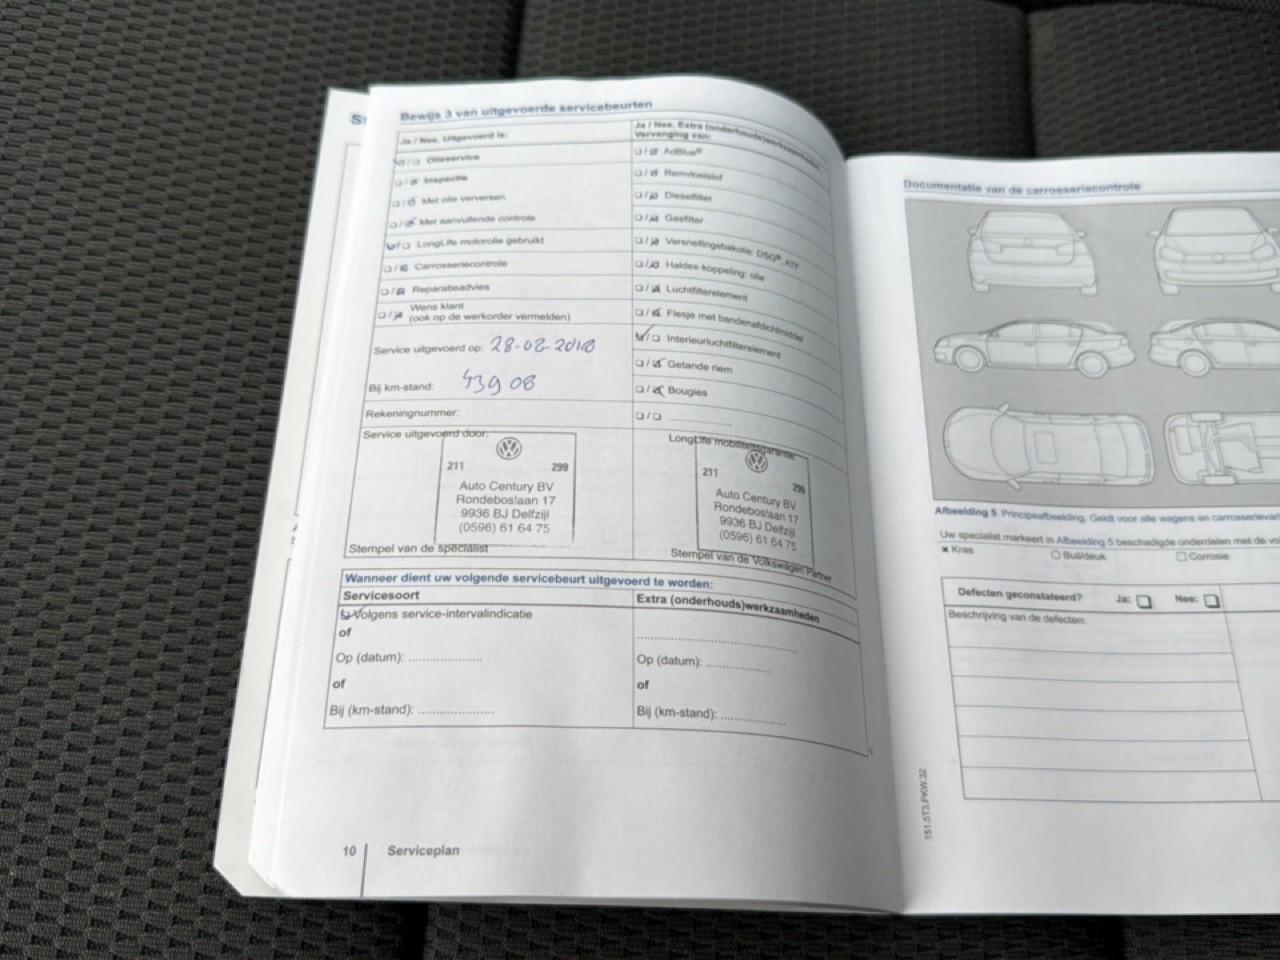 St
Bewijs 3 van uitgevoerde servicebeurten
Ja / Nee. Uitgevoerd is:
Olieservice
Inspectie
Met olie verversen
Met aanvullende controle
LongLife motorolie gebruikt
Carrosseriecontrole
Reparatieadvies
Wens klant
(ook op de werkorder vermelden)
Service uitgevoerd op: 28-02-2018
Bij km-stand: 43908
Rekeningnummer:
Service uitgevoerd door:
211 299
Auto Century BV
Rondeboslaan 17
9936 BJ Delfzijl
(0596) 61 64 75
Stempel van de specialist
Ja / Nee. Extra (onderhouds)werkzaamheden
Vervanging van:
AdBlue®
Remvloeistof
Dieselfilter
Gasfilter
Versnellingsbakolie: DSG®, ATF
Haldex-koppeling: olie
Luchtfilterelement
Flesje met bandenafdichtmiddel
Interieurluchtfilterelement
Getande riem
Bougies
LongLife mobiliteitsgarantie:
211 299
Auto Century BV
Rondeboslaan 17
9936 BJ Delfzijl
(0596) 61 64 75
Stempel van de Volkswagen Partner
Wanneer dient uw volgende servicebeurt uitgevoerd te worden:
Servicesoort
Volgens service-intervalindicatie
of
Op (datum): ....................
of
Bij (km-stand): ....................
Extra (onderhouds)werkzaamheden
Op (datum): ....................
of
Bij (km-stand): ....................
10 Serviceplan
Documentatie van de carrosseriecontrole
Afbeelding 5 Principeafbeelding. Geldt voor alle wagens en
Uw specialist markeert in Afbeelding 5 beschadigde onderdelen met de
Kras
Buil/deuk
Corrosie
Defecten geconstateerd? Ja: Nee:
Beschrijving van de defecten:
151.5T3.PKW.32